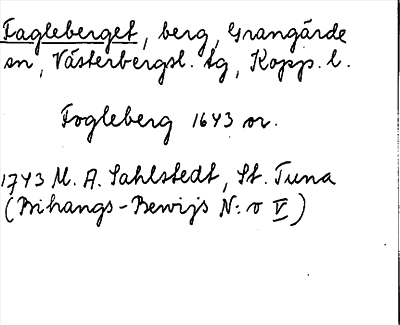 Fagleberget, berg, Grangärde
sn, Västerbergsl. tg, Kopp. l.
Fogleberg 1643 or.
1743 M. A. Sahlstedt, St. Tuna
(Bihangs-Bewijs N:o V)